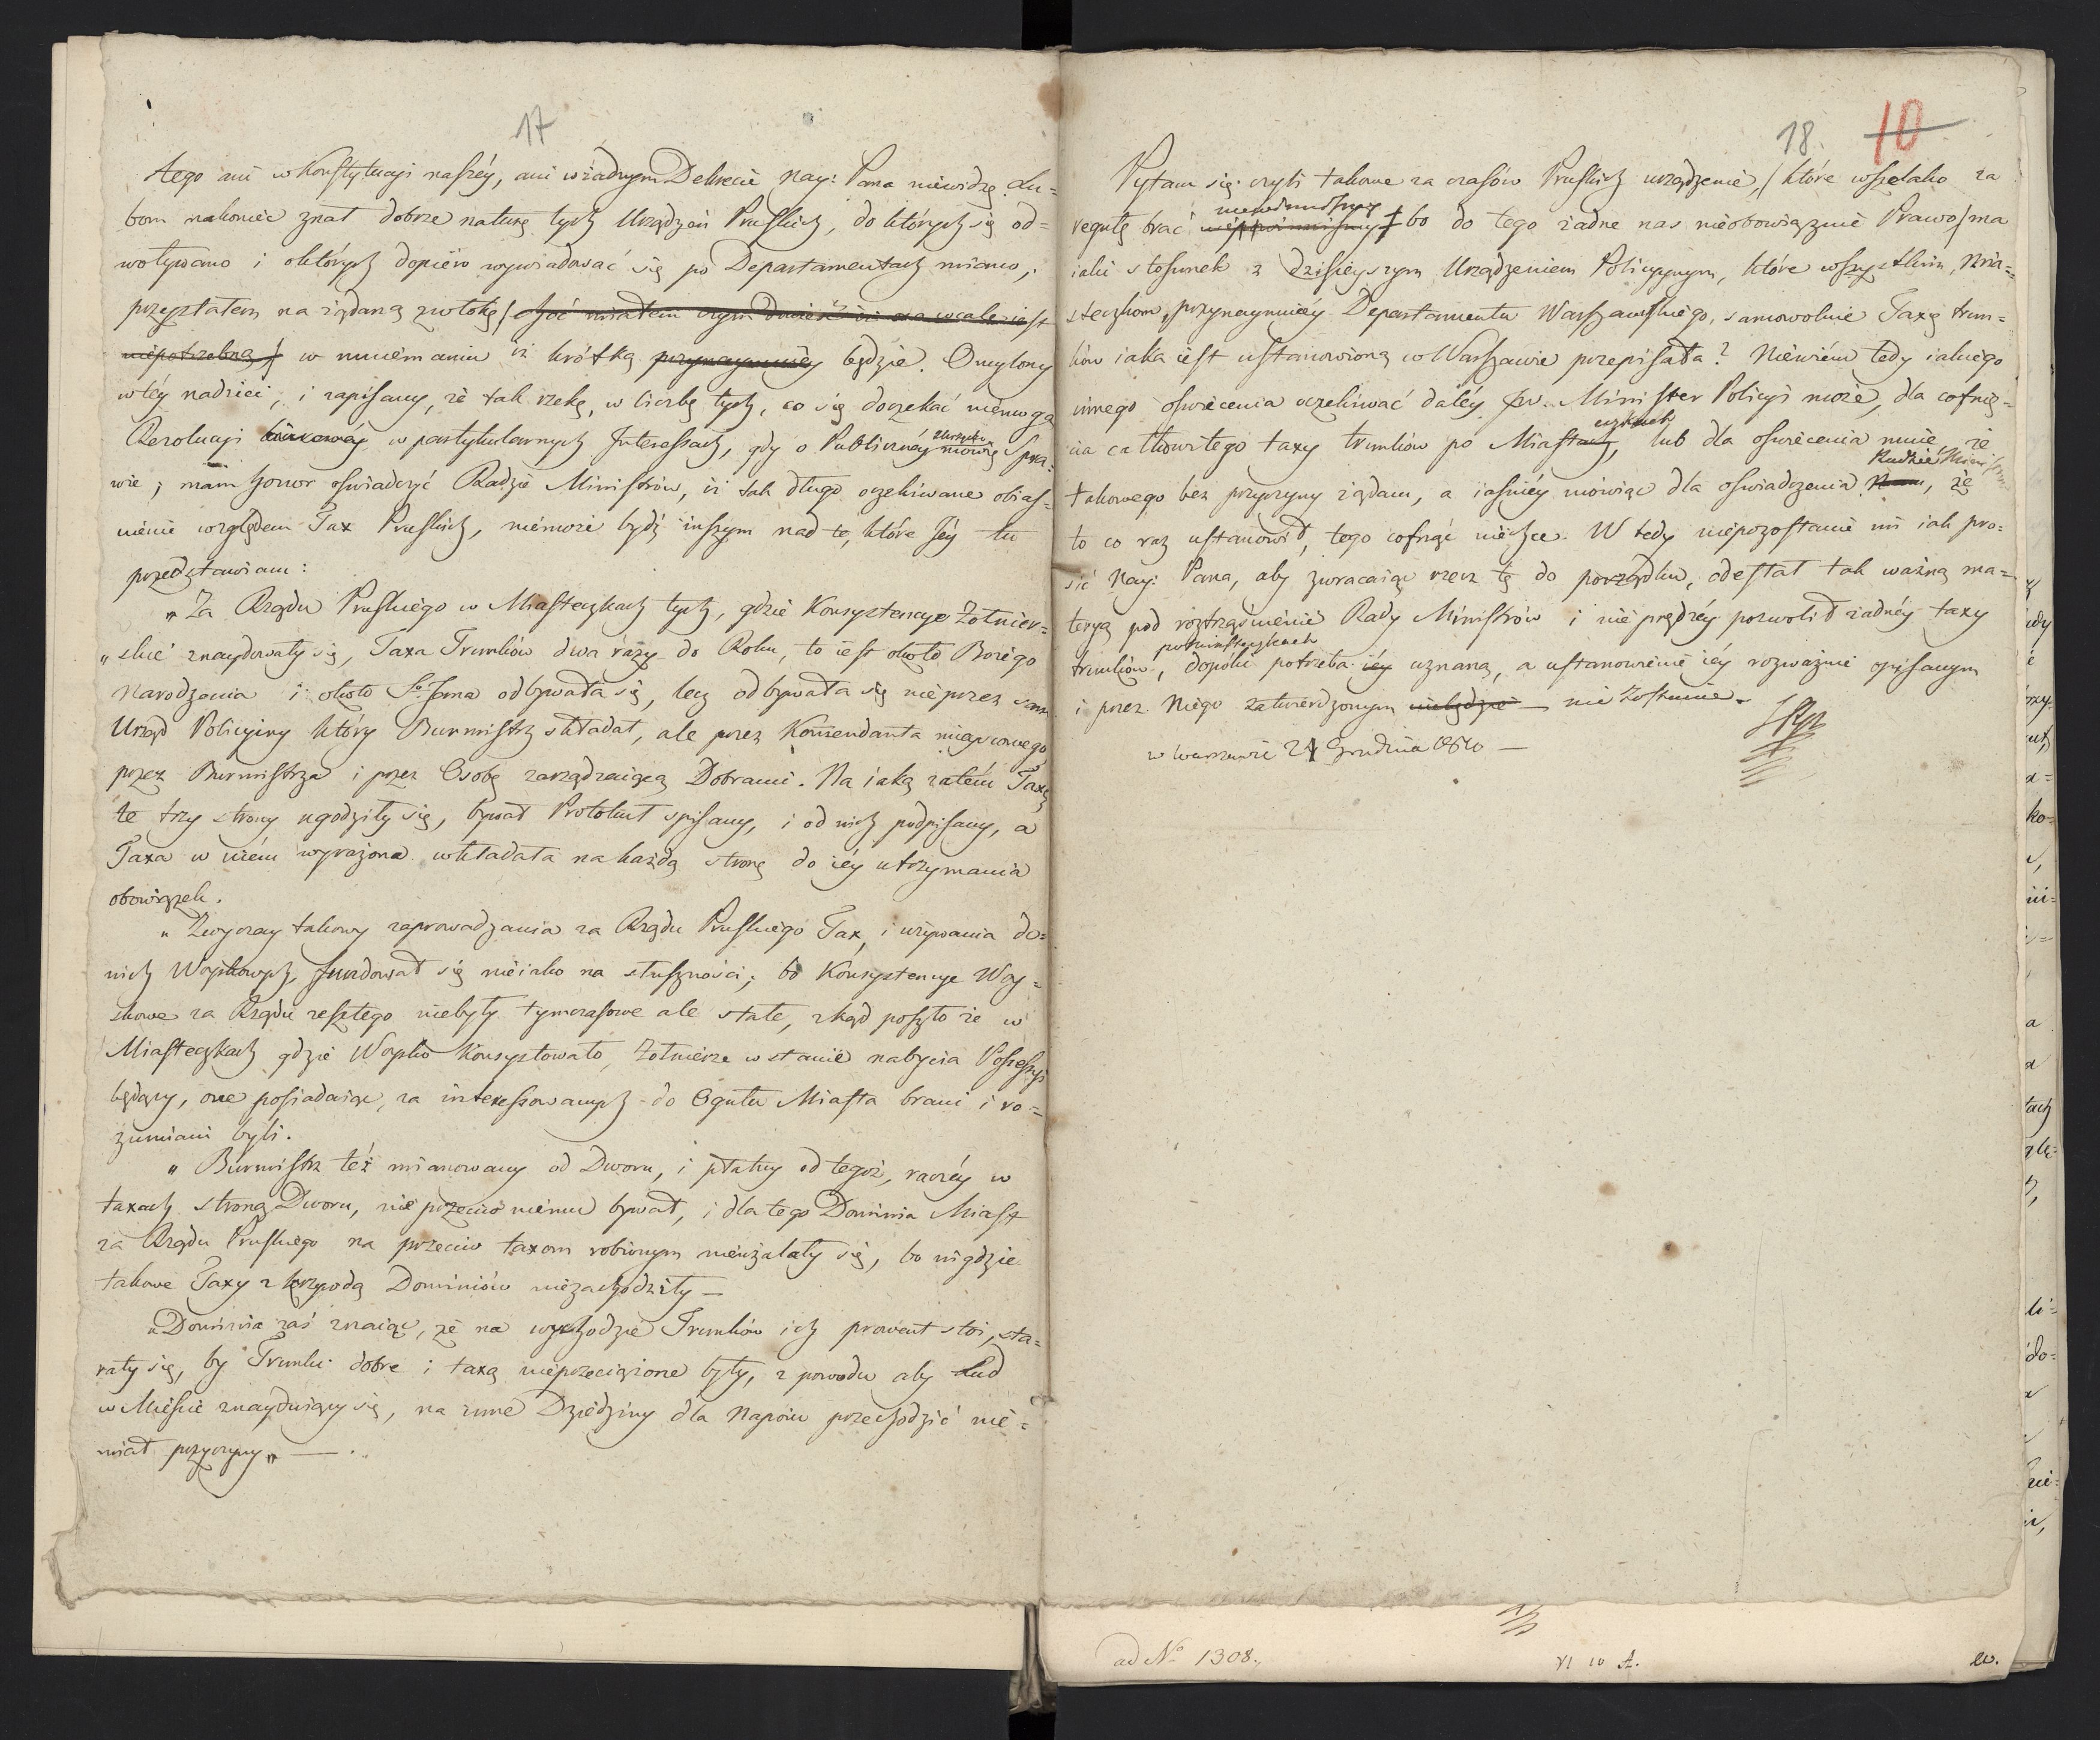 17
tego ani w Konstytucyi naszéy, ani w żadnym Dekrecie Nay: Pana niewidzę. Lu=
bom nakoniec znał dobrze naturę tych Urządzeń Pruskich, do których się od=
woływano i o których dopiéro wywiadować się po Departamentach miano,
przystałem na żądaną zwłokę / choć miałem czym dowieść iż ona wcale iest
niepotrzebną / w mniemaniu iż krótką przynaymniéy będzie. Omylony
w téy nadziei, i zapisany, że tak rzekę, w liczbę tych, co się doczekać niemogą
Rezolucyi w partykularnych Interessach, gdy o Publicznéy mówię Spra=
wie; mam honor oświadczyć Radzie Ministrów, iż tak długo oczekiwane obiaś=
nienie względem Tax Pruskich, niemoże bydź inszym nad te, które Jéy tu
przedstawiam:
„Za Rządu Pruskiego w Miasteczkach tych, gdzie Konsystencye Żołnier=
„skie znaydowały się, Taxa Trunków dwa razy do Roku, to iest około Bożego
Narodzenia i około Sº Jana odbywała się, lecz odbywała się nie przez sam
Urząd Policyiny który Burmistrz składał, ale przez Komendanta mieyscowego
przez Burmistrza i przez Osobę zarządzaiącą Dobrami. Na iaką zatém Taxę
te trzy strony ugodziły się, bywał Protokuł spisany, i od nich podpisany, a
Taxa w niém wyrażona wkładała na każdą stronę do iéy utrzymania
obowiązek.
„Zwyczay takowy zaprowadzania za Rządu Pruskiego Tax, i używania do=
nich Woyskowych, fundował się nieiako na słuszności; bo Konsystencye Woy=
skowe za Rządu zeszłego niebyły tymczasowe ale stałe, zkąd poszło że w
Miasteczkach gdzie Woysko Konsystowało, Żołnierze w stanie nabycia Possessyi
będący, one posiadaiąc, za interessowanych do Ogułu Miasta brani i ro=
zumiani byli.
„Burmistrz też mianowany od Dworu, i płatny od tegoż, raczéy w
taxach stroną Dworu, nie przeciw niému bywał, i dla tego Dominia Miast
za Rządu Pruskiego na przeciw taxom robionym nieużalały się, bo nigdzie
takowe Taxy z krzywdą Dominiów niezachodziły —
„Dominia zaś znaiąc, że na wychodzie Trunków ich prowent stoi, sta=
rały się, by Trunki dobre i taxą nieprzeciążone były, z powodu aby Lud
w Mieście znayduiący się, na inne Dziedziny dla Napoiu przechodzić nie=
miał przyczyny„ — .
18. 10
Pytam się czyli takowe za czasów Pruskich urządzenie, / które wszelako za
regułę brać bo do tego żadne nas nieobowiązuie Prawo / ma
iaki stosunek z dzisieyszym Urządzeniem Policyynym, które wszystkim Mia=
steczkom, przynaymniéy Departamentu Warszawskiego, samowolnie Taxę trun=
ków iaka iest ustanowioną w Warszawie przepisała? Niewiém tedy iakiego
innego oświecenia oczekiwać daléy Jw. Minister Policyi może, dla cofnię=
cia całkowitego taxy trunków po Miasteczkach, lub dla oświecenia mnie, że
takowego bez przyczyny żądam, a iaśniéy mówiąc dla oświadczenia Radzie Ministrów, że
to co raz ustanowił, tego cofnąć niechce. W tedy niepozostanie mi iak pro=
sić Nay: Pana, aby zwracaiąc rzecz tę do porządku, odesłał tak ważną ma=
teryą pod roztrząśnienie Rady Ministrów i nie prędzéy pozwolił żadnéy taxy
trunków po Miasteczkach, dopóki potrzeba iéy uznaną, a ustanowienie iéy rozważnie opisanym
i przez Niego zatwierdzonym niebędzie — nie zostanie.
w Warszawie 21 Grudnia 1810 —
ad Nº 1308.
VI 10 A.